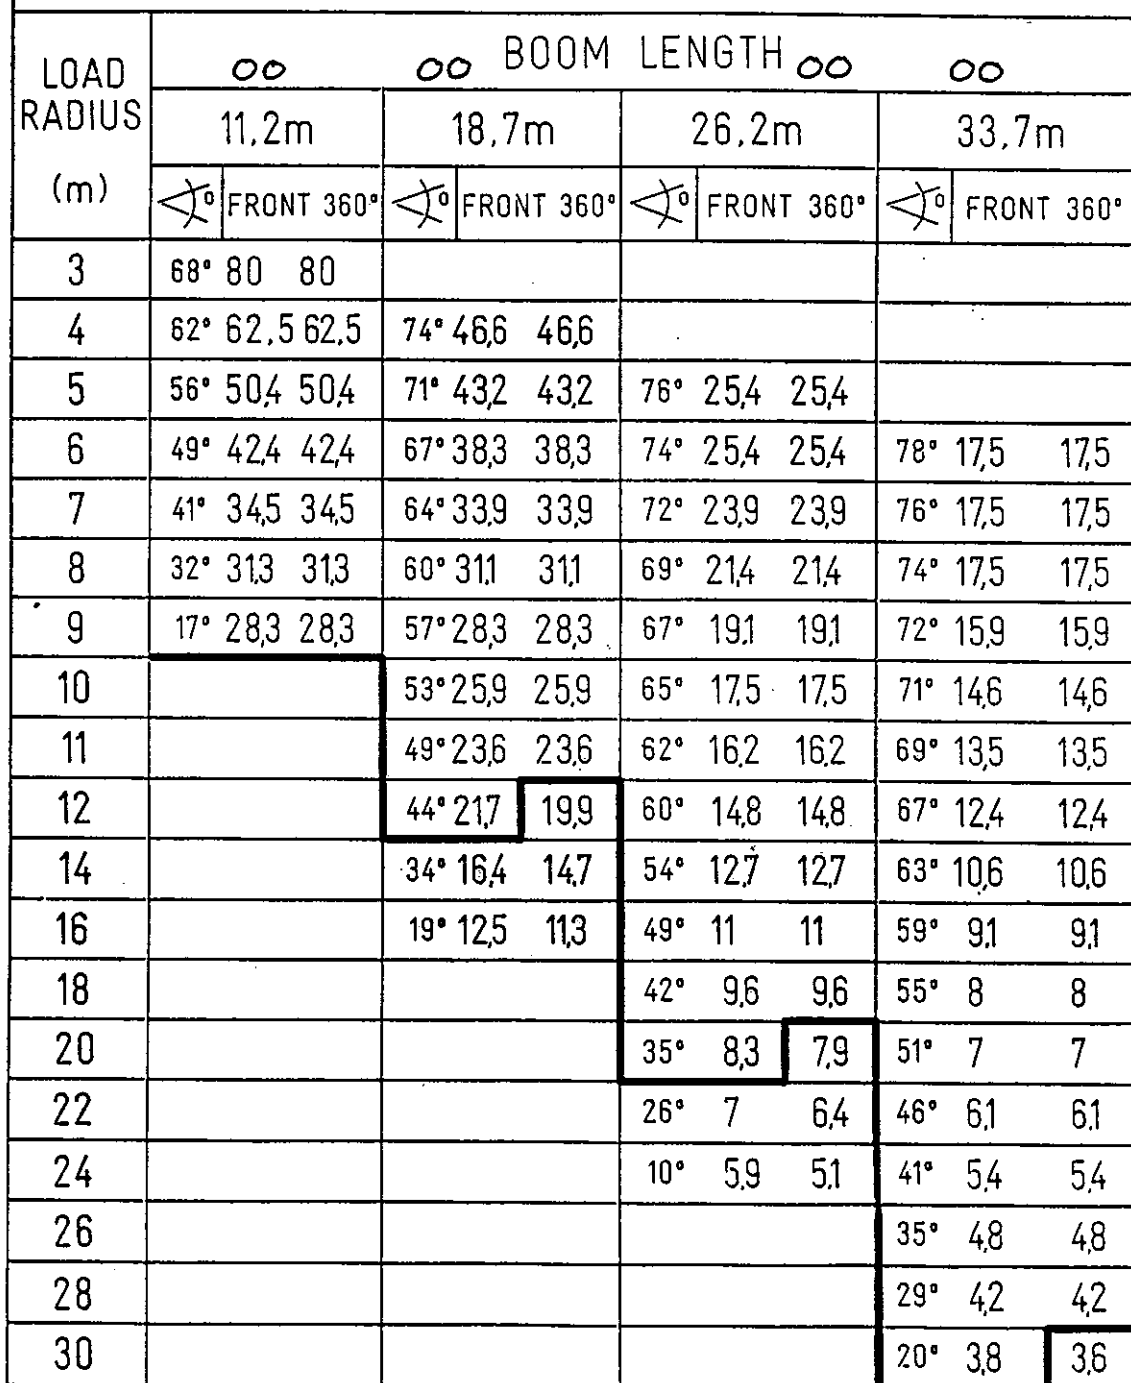 BOOM LENGTH
LOAD RADIUS (m)
OO OO OO OO
11,2m 18,7m 26,2m 33,7m
° FRONT 360° ° FRONT 360° ° FRONT 360° ° FRONT 360°
3 68° 80 80
4 62° 62,5 62,5 74° 46,6 46,6
5 56° 50,4 50,4 71° 43,2 43,2 76° 25,4 25,4
6 49° 42,4 42,4 67° 38,3 38,3 74° 25,4 25,4 78° 17,5 17,5
7 41° 34,5 34,5 64° 33,9 33,9 72° 23,9 23,9 76° 17,5 17,5
8 32° 31,3 31,3 60° 31,1 31,1 69° 21,4 21,4 74° 17,5 17,5
9 17° 28,3 28,3 57° 28,3 28,3 67° 19,1 19,1 72° 15,9 15,9
10 53° 25,9 25,9 65° 17,5 17,5 71° 14,6 14,6
11 49° 23,6 23,6 62° 16,2 16,2 69° 13,5 13,5
12 44° 21,7 19,9 60° 14,8 14,8 67° 12,4 12,4
14 34° 16,4 14,7 54° 12,7 12,7 63° 10,6 10,6
16 19° 12,5 11,3 49° 11 11 59° 9,1 9,1
18 42° 9,6 9,6 55° 8 8
20 35° 8,3 7,9 51° 7 7
22 26° 7 6,4 46° 6,1 6,1
24 10° 5,9 5,1 41° 5,4 5,4
26 35° 4,8 4,8
28 29° 4,2 4,2
30 20° 3,8 3,6